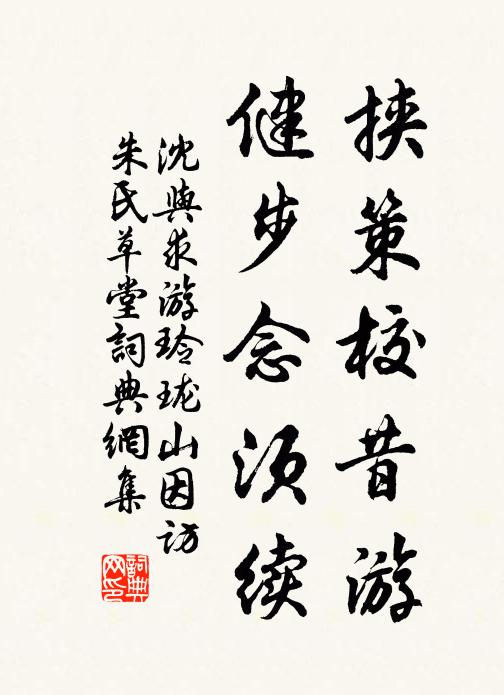 挟策校昔游
健步念须续
沈與求游玲珑山因访
朱氏草堂詞典網集
詞典
网印